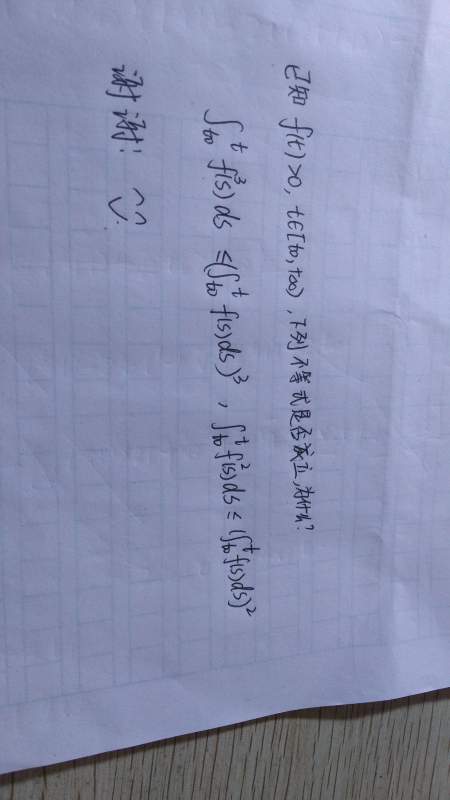 已知 f(t)>0, t∈[t0,+∞), 下列不等式是否成立,为什么?
∫_{t0}^{t} f³(s)ds ≤ (∫_{t0}^{t} f(s)ds)³, ∫_{t0}^{t} f²(s)ds ≤ (∫_{t0}^{t} f(s)ds)²
谢谢!